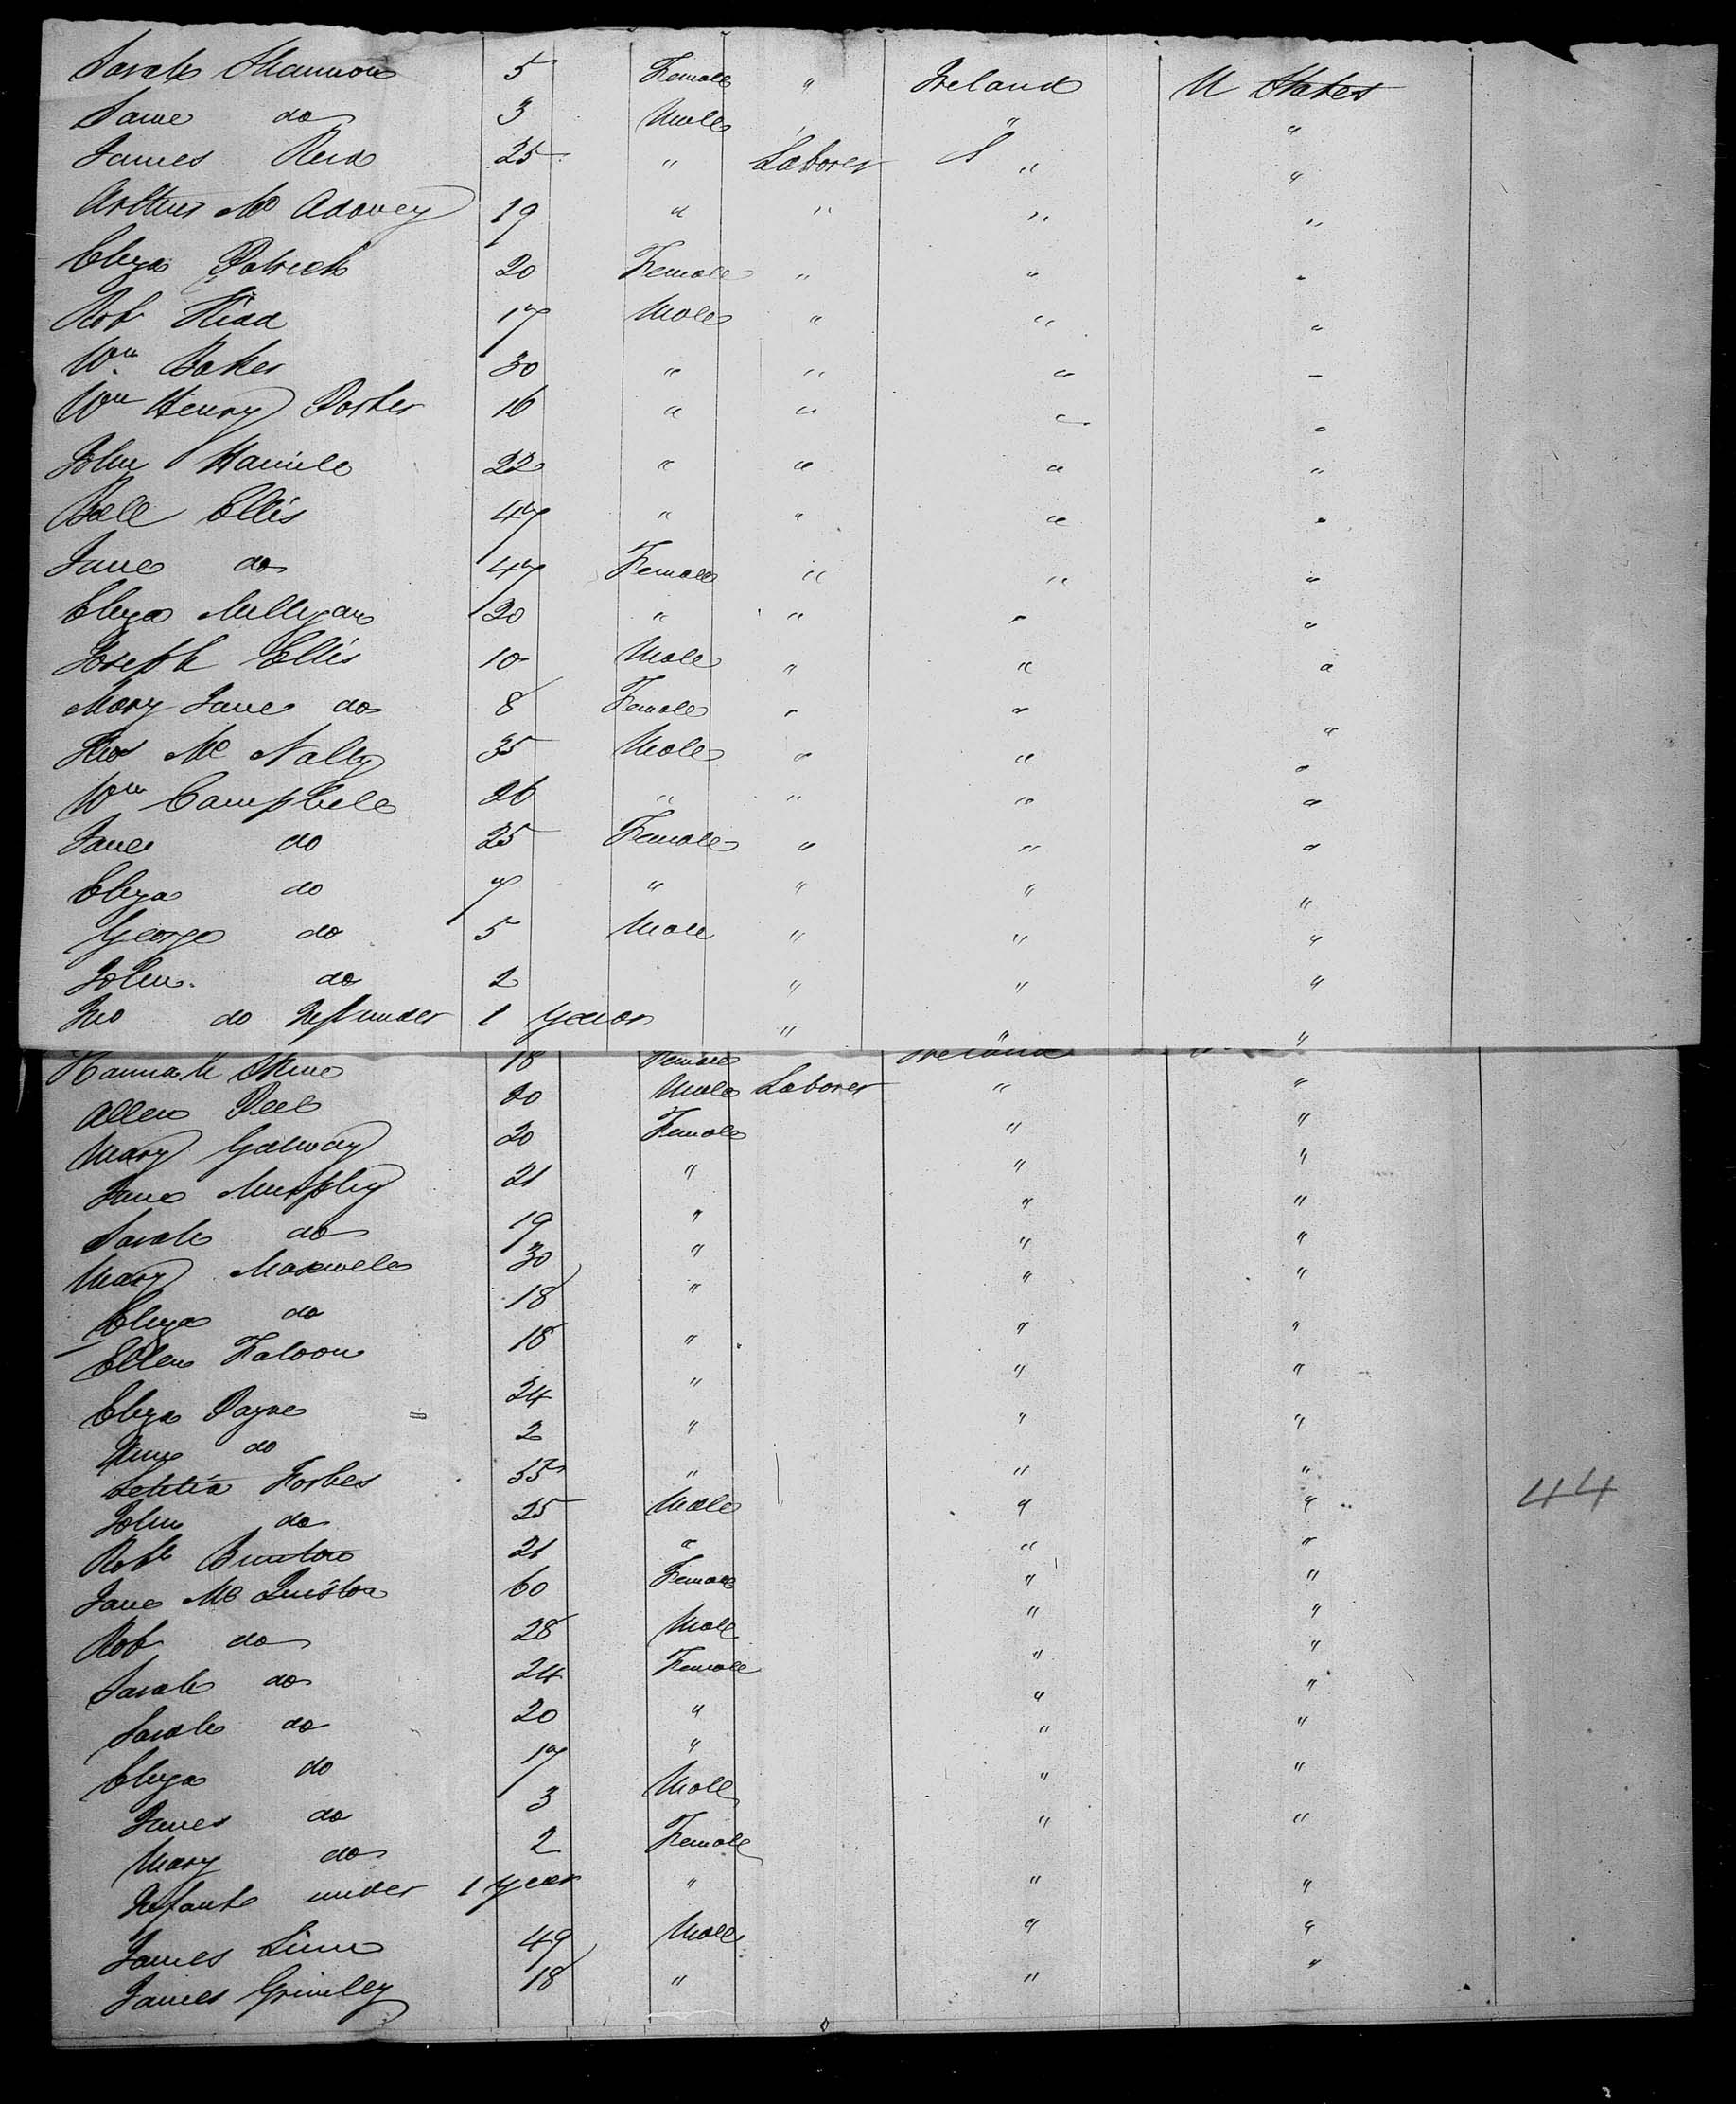 Sarah Shannon 5 Female " Ireland U States
Same do 3 Male " " "
James Reid 25 " Laborer " "
Arthur Mc Adovey 19 " " " "
Eliza Patrick 20 Female " " "
Rob Kidd 17 Male " " "
Wm Baker 30 " " " "
Wm Henry Porter 16 " " " "
John Hamile 22 " " " "
Ball Ellis 47 " " " "
Jane do 47 Female " " "
Eliza Milligan 20 " " " "
Joseph Ellis 10 Male " " "
Mary Jane do 8 Female " " "
Mc Nally 35 Male " " "
Wm Campbell 26 " " " "
Jane do 25 Female " " "
Eliza do 7 " " " "
George do 5 Male " " "
John do 2 " " "
do Inft under 1 year " " "
Hannah 18 Female Ireland
Allen Peel 20 Male Laborer " "
Mary Galway 20 Female " "
Jane Murphy 21 " " "
Sarah do 19 " " "
Mary Maxwell 30 " " "
Eliza do 18 " " "
Ellen Faloon 18 " " "
Eliza Payne 24 " " "
do 2 " " "
Letitia Forbes 55 " " "
John do 25 Male " " 44
Robt Bunton 21 " " "
Jane Mc Quiston 60 Female " "
Rob do 28 Male " "
Sarah do 24 Female " "
Sarah do 20 " " "
Eliza do 17 " " "
James do 3 Male " "
Mary do 2 Female " "
Infant under 1 year " " "
James Linn 49 Male " "
James Grimley 18 " " "